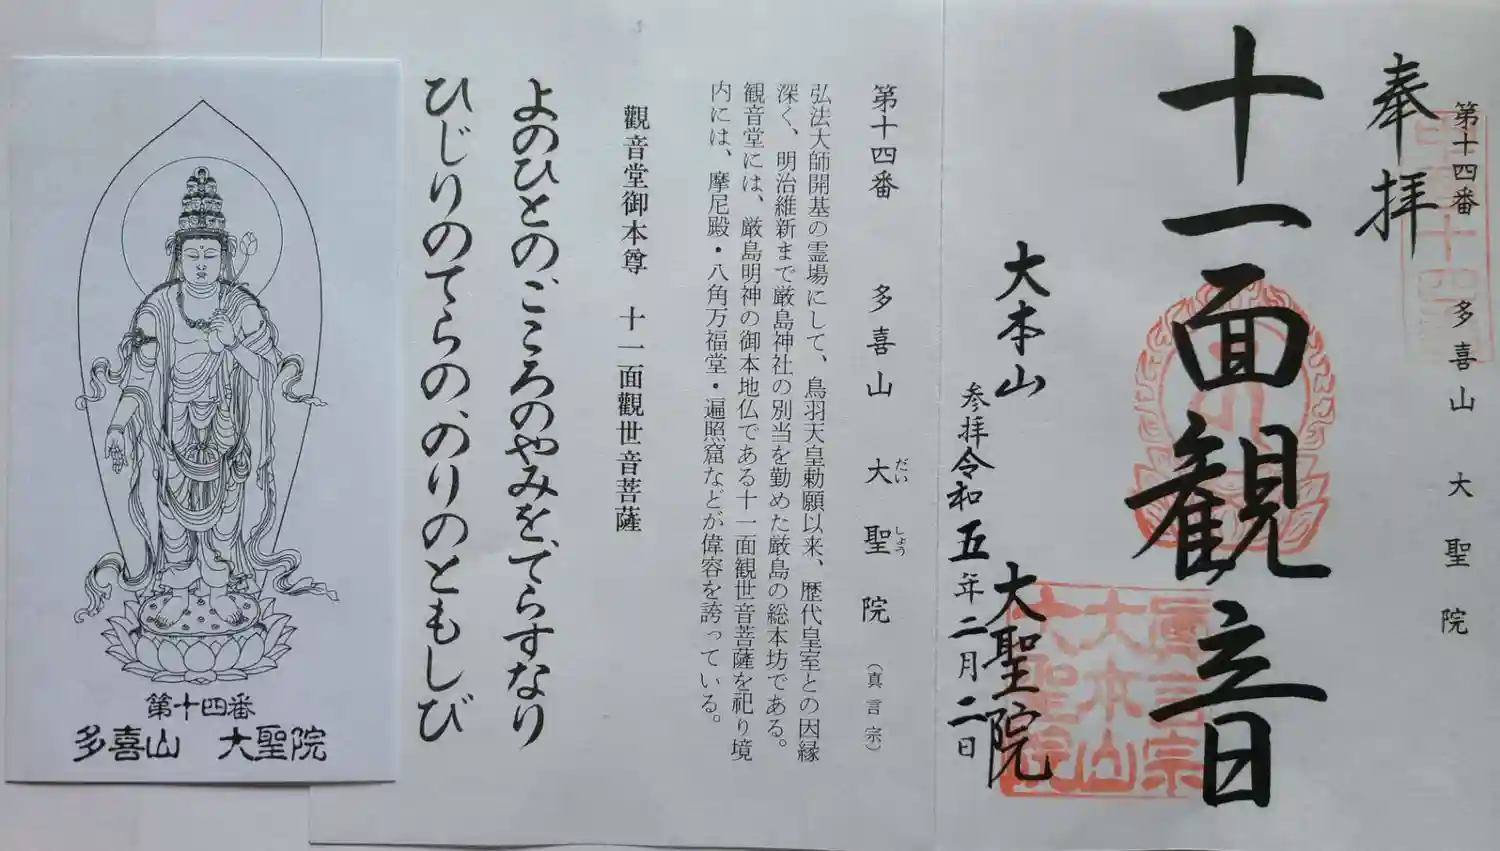 第十四番 多喜山 大聖院
奉拝
十一面観音
大本山 大聖院
参拝令和五年二月二日
第十四番 多喜山 大聖院 (真言宗)
だいしょう
弘法大師開基の霊場にして、鳥羽天皇勅願以来、歴代皇室との因縁
深く、明治維新まで厳島神社の別当を勤めた厳島の総本坊である。
観音堂には、厳島明神の御本地仏である十一面観世音菩薩を祀り境
内には、摩尼殿・八角万福堂・遍照窟などが偉容を誇っている。
觀音堂御本尊 十一面觀世音菩薩
よのひとの、こころのやみを、てらすなり
ひじりのてらの、のりのともしび
第十四番
多喜山 大聖院
真言宗
大本山
大聖院